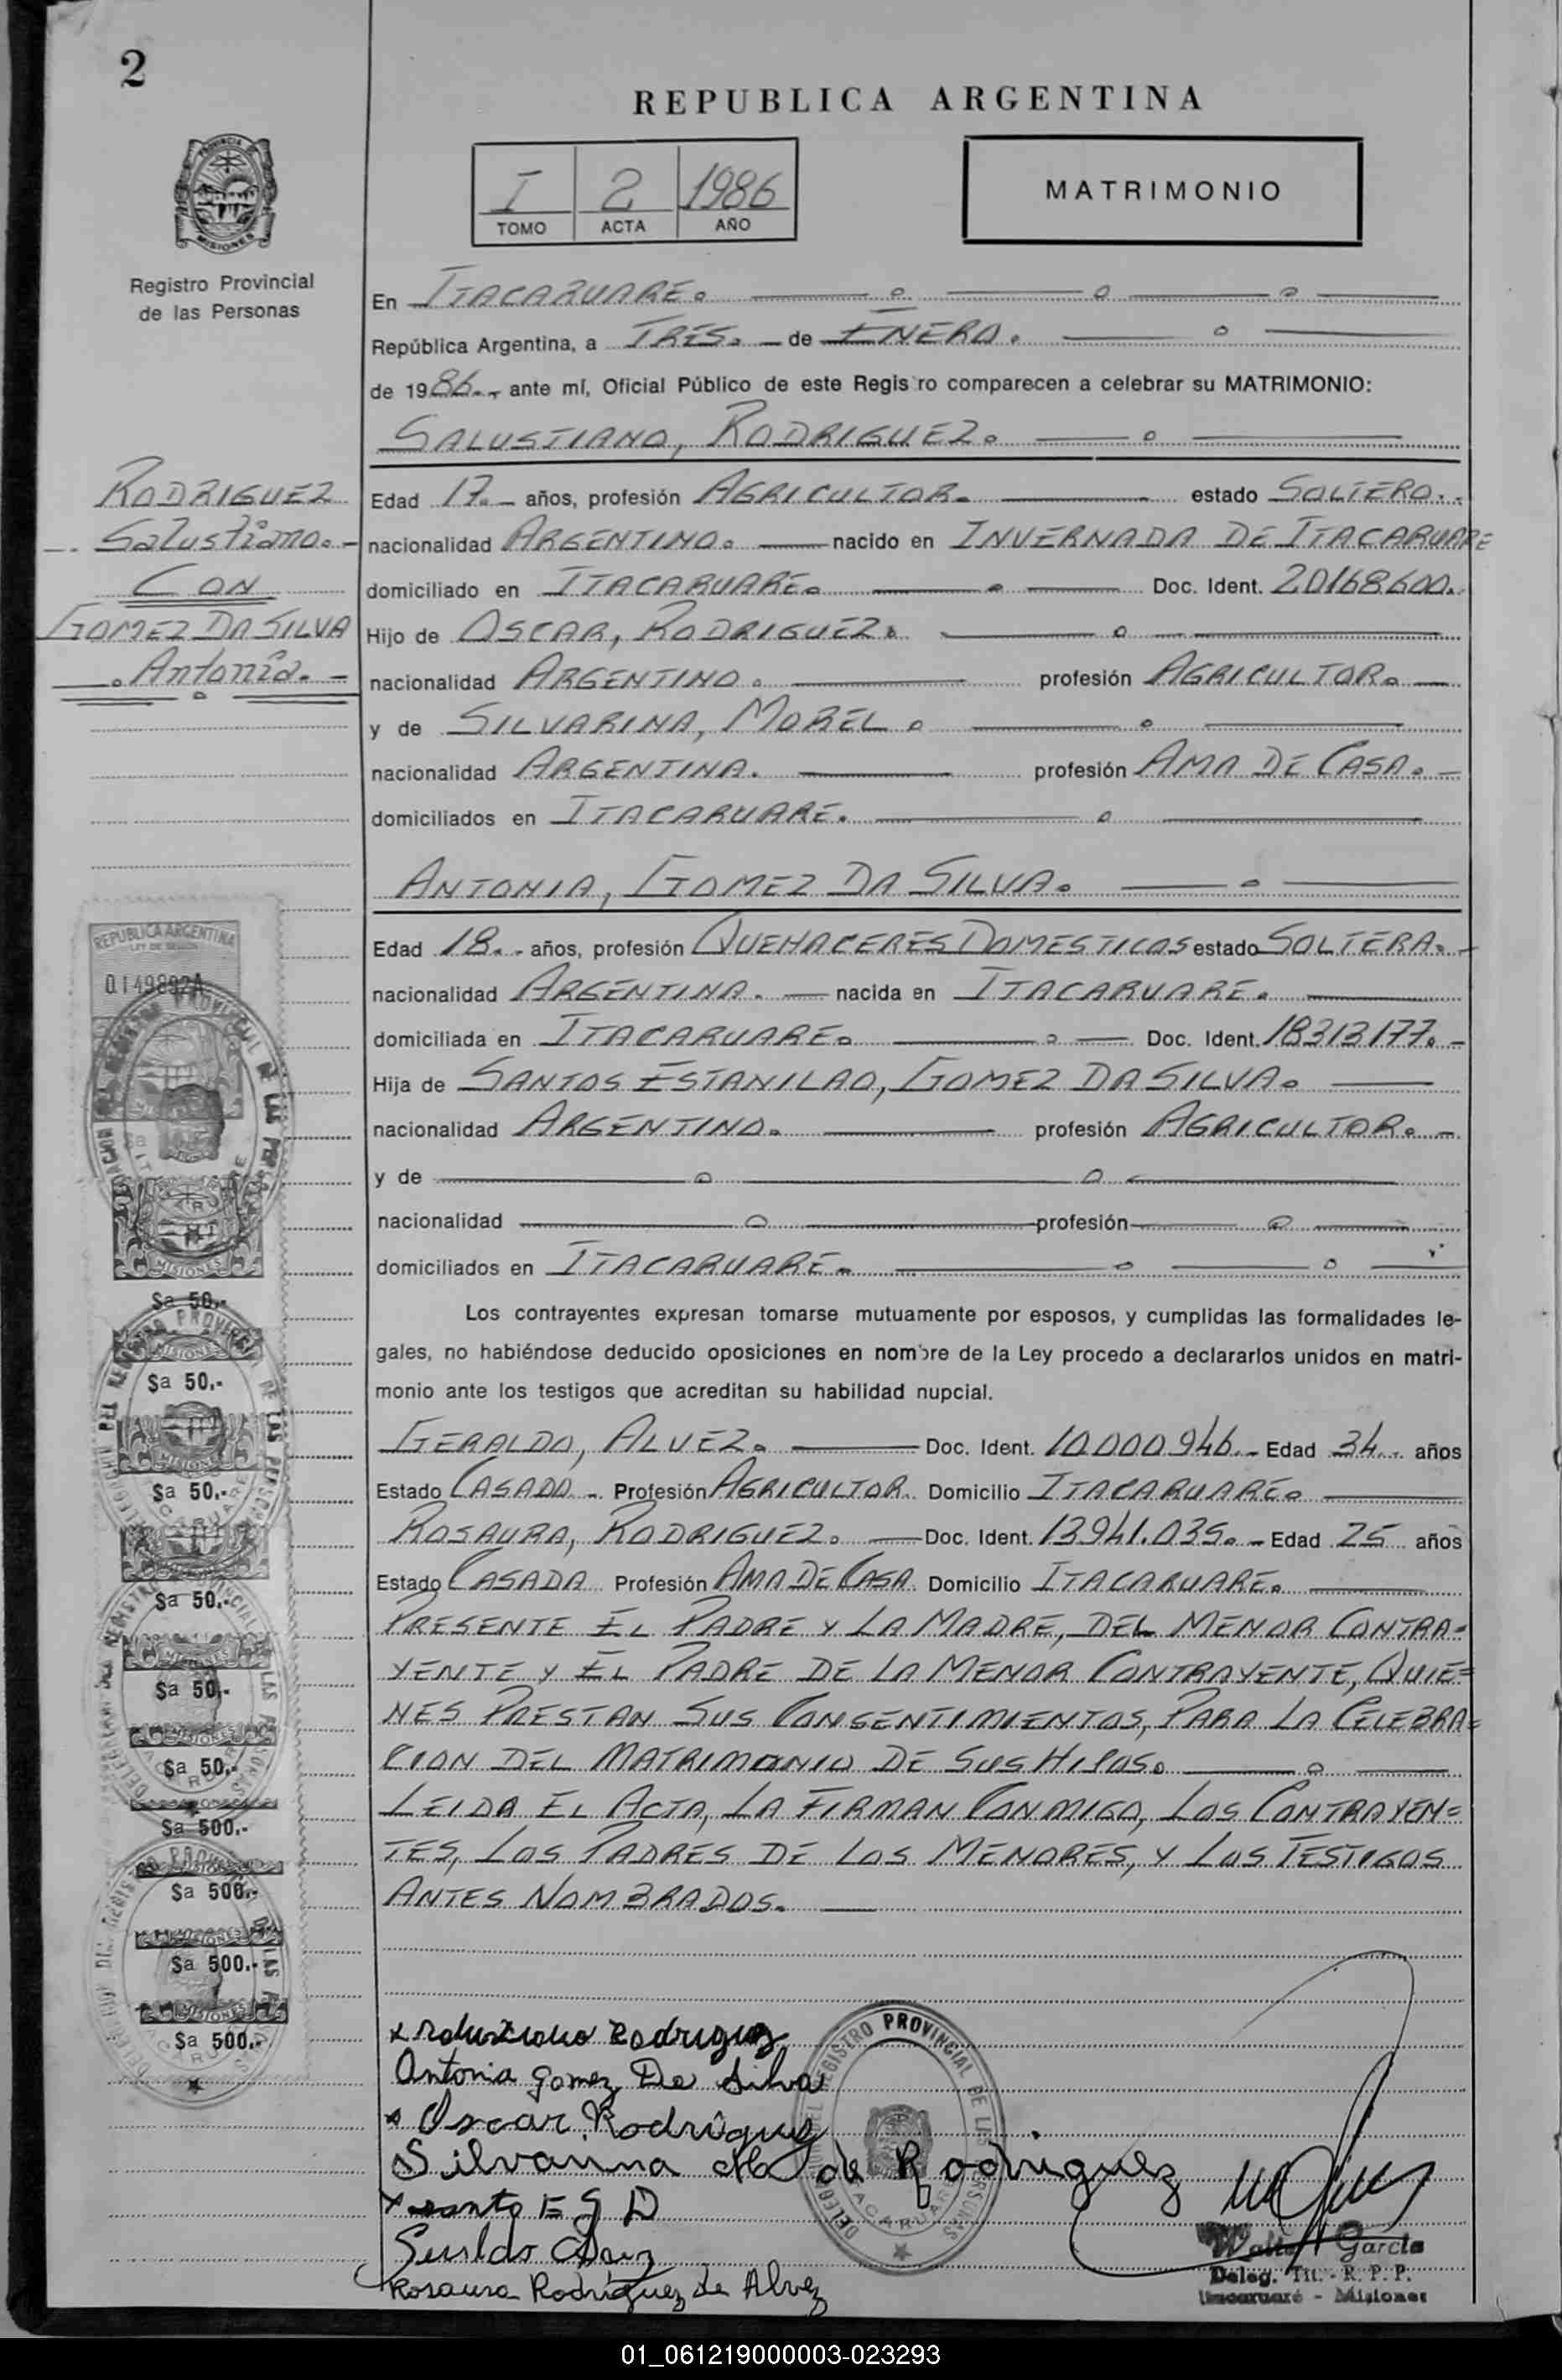 2
REPUBLICA ARGENTINA
I 2 1986
TOMO ACTA AÑO
MATRIMONIO
PROVINCIA DE
MISIONES
Registro Provincial
de las Personas
En ITACARUARE.
República Argentina, a TRES. de ENERO.
de 1986.- ante mí, Oficial Público de este Registro comparecen a celebrar su MATRIMONIO:
SALUSTIANO, RODRIGUEZ.
RODRIGUEZ
Salustiano.-
CON
GOMEZ DA SILVA
Antonia.-
Edad 17.- años, profesión AGRICULTOR. estado SOLTERO.
nacionalidad ARGENTINO. nacido en INVERNADA DE ITACARUARE
domiciliado en ITACARUARE. Doc. Ident. 20168600.
Hijo de OSCAR, RODRIGUEZ.
nacionalidad ARGENTINO. profesión AGRICULTOR.
y de SILVARINA, MOREL.
nacionalidad ARGENTINA. profesión AMA DE CASA.-
domiciliados en ITACARUARE.
ANTONIA, GOMEZ DA SILVA.
Edad 18.- años, profesión QUEHACERES DOMESTICOS estado SOLTERA.-
nacionalidad ARGENTINA. nacida en ITACARUARE.
domiciliada en ITACARUARE. Doc. Ident. 18313177.-
Hija de SANTOS ESTANILAO, GOMEZ DA SILVA.
nacionalidad ARGENTINO. profesión AGRICULTOR.-
y de
nacionalidad profesión
domiciliados en ITACARUARE.
Los contrayentes expresan tomarse mutuamente por esposos, y cumplidas las formalidades le-
gales, no habiéndose deducido oposiciones en nombre de la Ley procedo a declararlos unidos en matri-
monio ante los testigos que acreditan su habilidad nupcial.
GERALDO, ALVEZ. Doc. Ident. 10000946.- Edad 34. años
Estado CASADO - Profesión AGRICULTOR. Domicilio ITACARUARE.
ROSAURA, RODRIGUEZ. Doc. Ident. 13941.035.- Edad 25 años
Estado CASADA Profesión AMA DE CASA Domicilio ITACARUARE.
PRESENTE EL PADRE Y LA MADRE, DEL MENOR CONTRA=
YENTE Y EL PADRE DE LA MENOR CONTRAYENTE, QUIE=
NES PRESTAN SUS CONSENTIMIENTOS, PARA LA CELEBRA=
CION DEL MATRIMONIO DE SUS HIJOS.
LEIDA EL ACTA, LA FIRMAN CONMIGO, LOS CONTRAYEN=
TES, LOS PADRES DE LOS MENORES, Y LOS TESTIGOS
ANTES NOMBRADOS.
REPUBLICA ARGENTINA
LEY DE SELLOS
0149892A
MISIONES
$a 50.-
$a 50.-
$a 50.-
$a 50.-
$a 50.-
$a 50.-
$a 500.-
$a 500.-
$a 500.-
$a 500.-
x Salustiano Rodriguez
Antonia Gomez Da Silva
x Oscar Rodriguez
Silvarina M de Rodriguez
x Santo E G D
Rosaura Rodriguez de Alvez
DELEGACION DEL REGISTRO PROVINCIAL DE LAS PERSONAS
ITACARUARE
Walter García
Deleg. Tit. - R. P. P.
Itacaruaré - Misiones
01_061219000003-023293